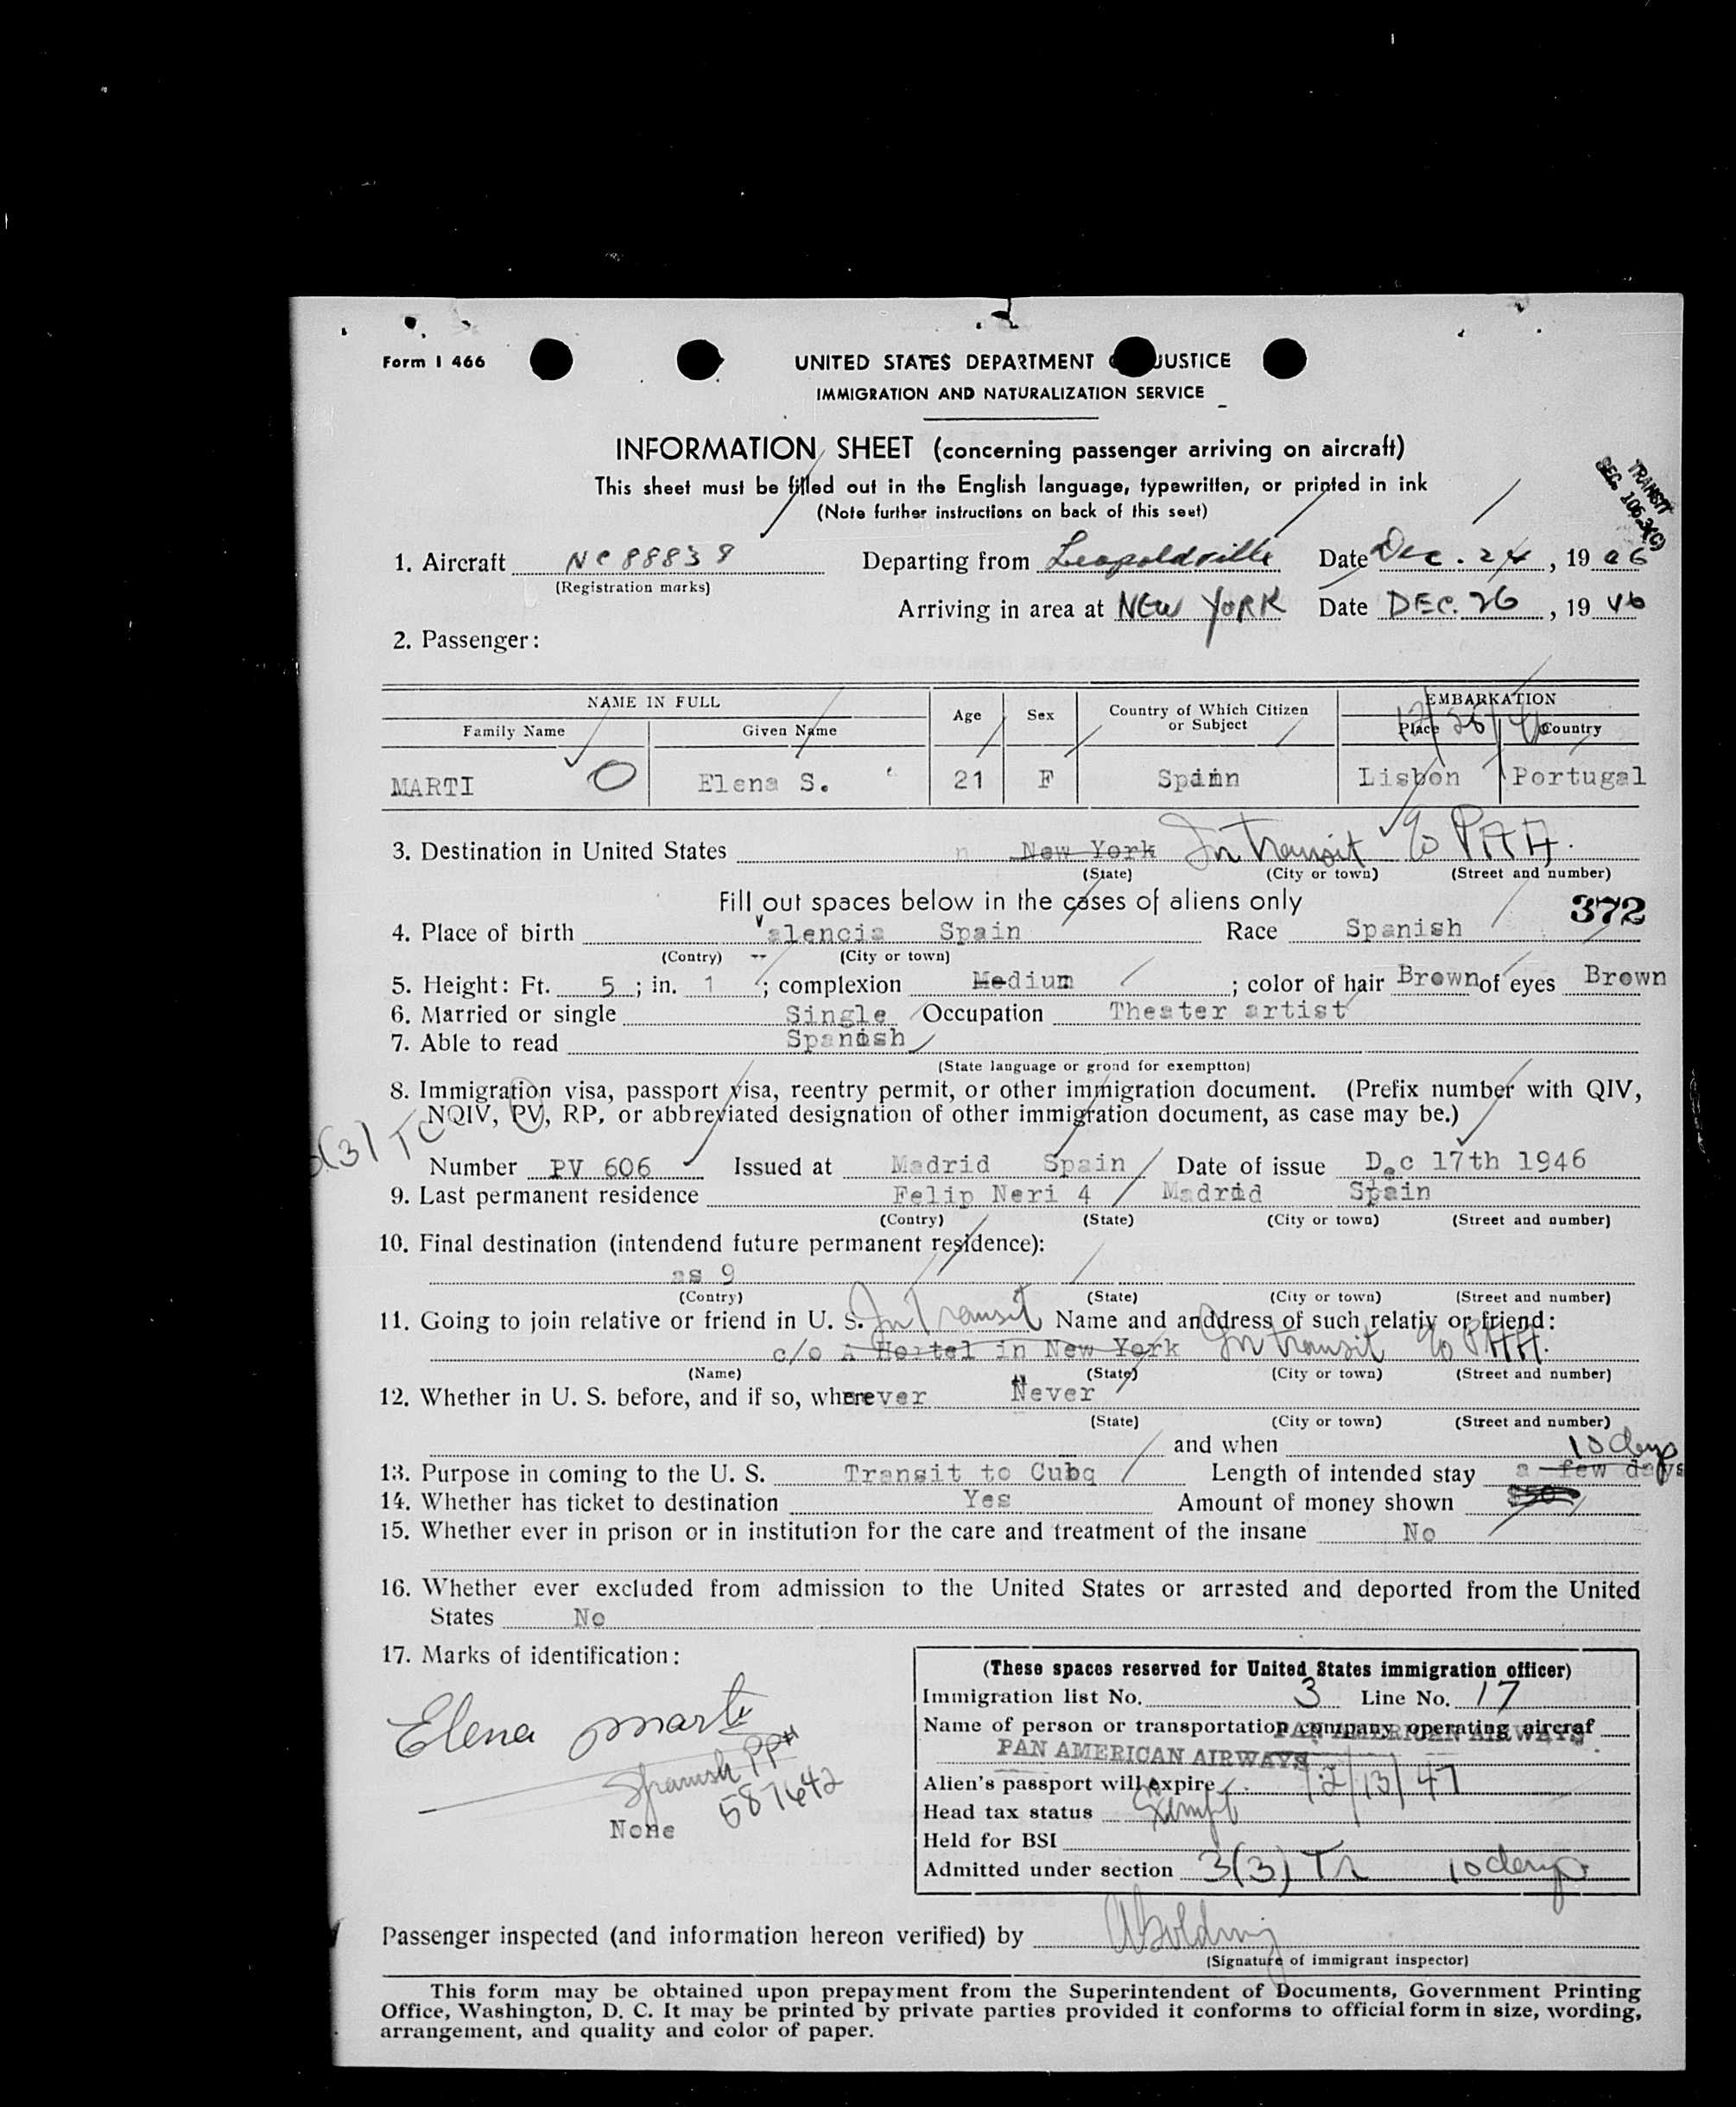 Form I 466
UNITED STATES DEPARTMENT JUSTICE
IMMIGRATION AND NATURALIZATION SERVICE
INFORMATION SHEET (concerning passenger arriving on aircraft)
This sheet must be filled out in the English language, typewritten, or printed in ink
(Note further instructions on back of this seet)
TRANSIT
SEC. 106.3(C)
1. Aircraft NC 88838 Departing from Leopoldville Date Dec. 24, 19 46
(Registration marks)
Arriving in area at NEW YORK Date DEC. 26, 19 46
2. Passenger:
NAME IN FULL Age Sex Country of Which Citizen or Subject EMBARKATION
Family Name Given Name Place Country
12/26/46
MARTI O Elena S. 21 F Spain Lisbon Portugal
3. Destination in United States New York In Transit c/o PAA.
(State) (City or town) (Street and number)
Fill out spaces below in the cases of aliens only
372
4. Place of birth Valencia Spain Race Spanish
(Contry) (City or town)
5. Height: Ft. 5; in. 1; complexion Medium; color of hair Brown of eyes Brown
6. Married or single Single Occupation Theater artist
7. Able to read Spanish
(State language or grond for exemptton)
8. Immigration visa, passport visa, reentry permit, or other immigration document. (Prefix number with QIV,
NQIV, PV, RP, or abbreviated designation of other immigration document, as case may be.)
(3) TC
Number PV 606 Issued at Madrid Spain Date of issue Dec 17th 1946
9. Last permanent residence Felip Neri 4 Madrid Spain
(Contry) (State) (City or town) (Street and number)
10. Final destination (intendend future permanent residence):
as 9
(Contry) (State) (City or town) (Street and number)
11. Going to join relative or friend in U. S. In Transit Name and anddress of such relatiy or friend:
c/o A Hortel in New York In transit c/o PAA.
(Name) (State) (City or town) (Street and number)
12. Whether in U. S. before, and if so, where ever Never
(State) (City or town) (Street and number)
and when
10 days
13. Purpose in coming to the U. S. Transit to Cuba Length of intended stay a few days
14. Whether has ticket to destination Yes Amount of money shown $50
15. Whether ever in prison or in institution for the care and treatment of the insane No
16. Whether ever excluded from admission to the United States or arrested and deported from the United
States No
17. Marks of identification:
Elena Marti
Spanish PP#
587642
None
(These spaces reserved for United States immigration officer)
Immigration list No. 3 Line No. 17
Name of person or transportation company operating aircraf
PAN AMERICAN AIRWAYS
PAN AMERICAN AIRWAYS
Alien's passport will expire 12/13/47
Head tax status Exempt
Held for BSI
Admitted under section 3(3) Tr 10 days
Passenger inspected (and information hereon verified) by
(Signature of immigrant inspector)
This form may be obtained upon prepayment from the Superintendent of Documents, Government Printing
Office, Washington, D. C. It may be printed by private parties provided it conforms to official form in size, wording,
arrangement, and quality and color of paper.